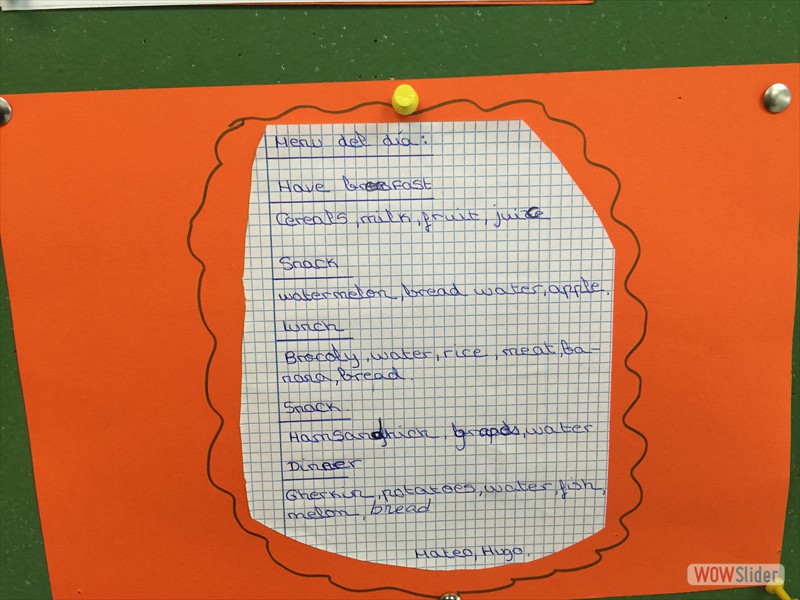 Menu del día:
Have breefast
Cereals, milk, fruit, juice
Snack
watermelon, bread water, apple.
Lunch
Brocoly, water, rice, meat, ba-
nana, bread.
Snack
Hamsandwich, grapes, water
Dinner
Gherkin, potatoes, water, fish,
melon, bread
Mateo, Hugo.
WOWSlider